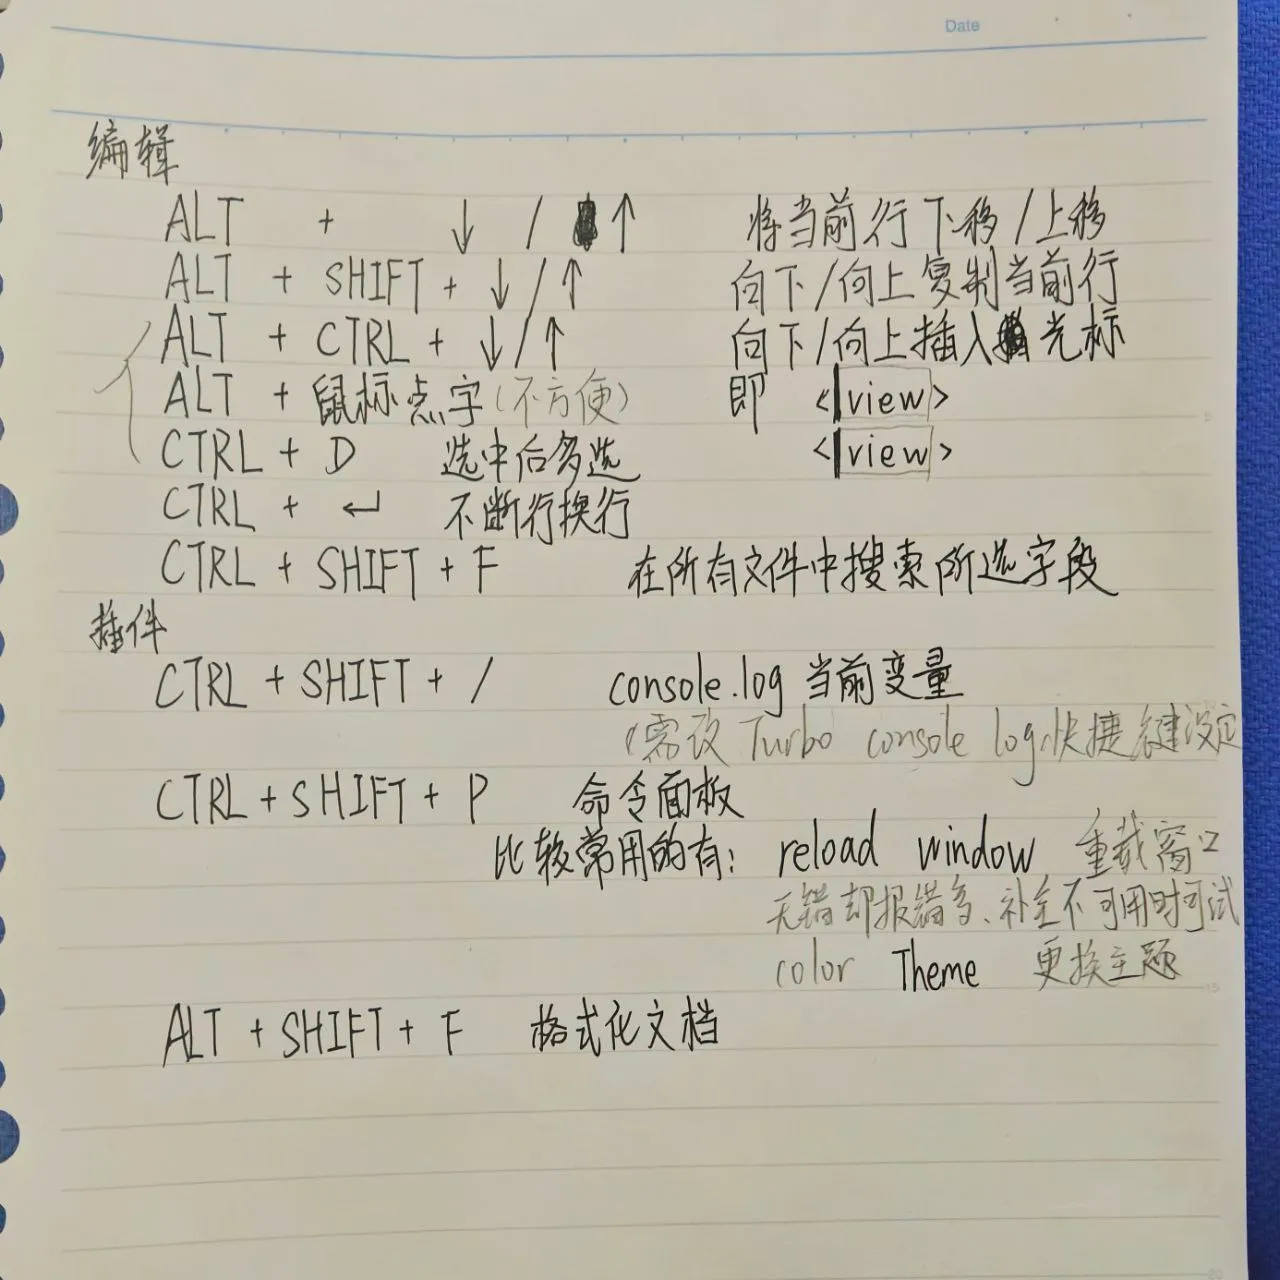 Date
编辑
ALT + ↓ / ↑ 将当前行下移/上移
ALT + SHIFT + ↓/↑ 向下/向上复制当前行
ALT + CTRL + ↓/↑ 向下/向上插入光标
ALT + 鼠标点字(不方便) 即 <|view>
CTRL + D 选中后多选 <|view>
CTRL + ↵ 不断行换行
CTRL + SHIFT + F 在所有文件中搜索所选字段
插件
CTRL + SHIFT + / console.log 当前变量
(需改 Turbo console log 快捷键设定
CTRL + SHIFT + P 命令面板
比较常用的有: reload window 重载窗口
无错却报错多、补全不可用时可试
color Theme 更换主题
ALT + SHIFT + F 格式化文档